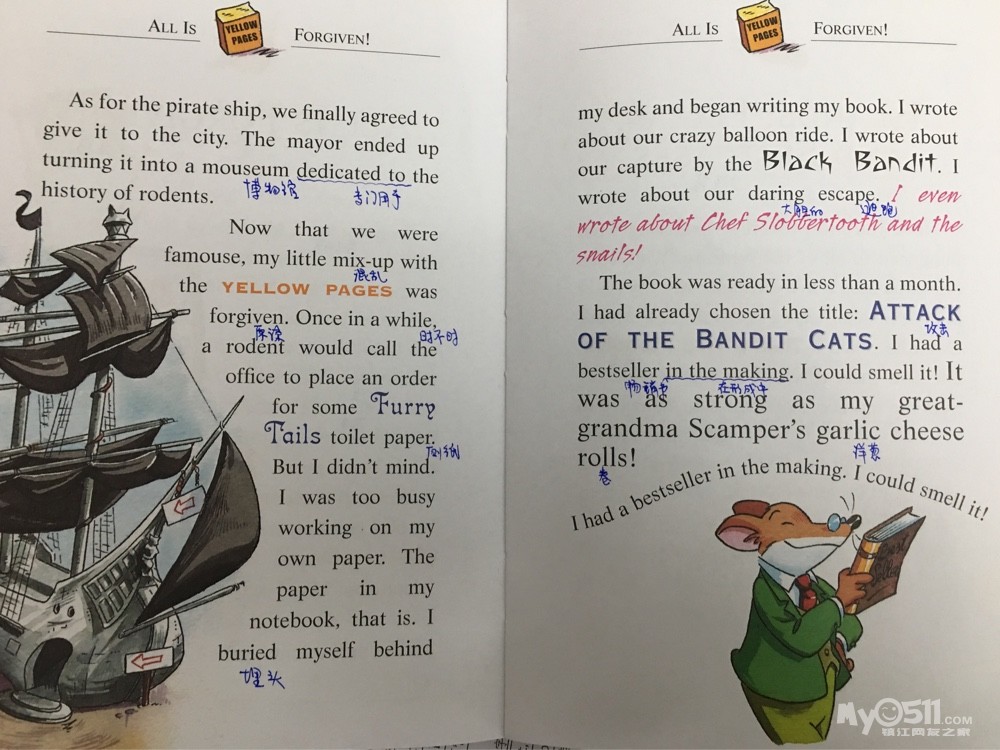 ALL IS YELLOW PAGES FORGIVEN!
As for the pirate ship, we finally agreed to
give it to the city. The mayor ended up
turning it into a mouseum dedicated to the
history of rodents. 博物馆 专门用于
Now that we were
famouse, my little mix-up with
混乱
the YELLOW PAGES was
forgiven. Once in a while,
原谅 时不时
a rodent would call the
office to place an order
for some Furry
Tails toilet paper.
厕纸
But I didn't mind.
I was too busy
working on my
own paper. The
paper in my
notebook, that is. I
buried myself behind
埋头
ALL IS YELLOW PAGES FORGIVEN!
my desk and began writing my book. I wrote
about our crazy balloon ride. I wrote about
our capture by the Black Bandit. I
wrote about our daring escape. I even
大胆的 逃跑
wrote about Chef Slobbertooth and the
snails!
The book was ready in less than a month.
I had already chosen the title: ATTACK
攻击
OF THE BANDIT CATS. I had a
bestseller in the making. I could smell it! It
畅销书 在形成中
was as strong as my great-
grandma Scamper's garlic cheese
洋葱
rolls!
卷
I had a bestseller in the making. I could smell it!
My0511.COM
镇江网友之家